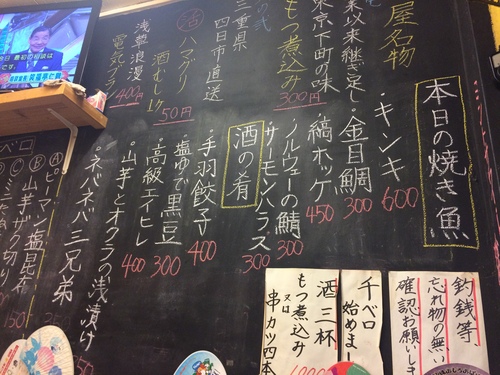 屋名物
来以来継ぎ足し
東京下町の味
もつ煮込み
300円
三重県
四日市直送
㊪ハマグリ
酒むし1ヶ
50円
浅草浪漫
電気ブラン
400円
本日の焼き魚
・キンキ 600
・金目鯛 300
・縞ホッケ 450
・ノルウェーの鯖 300
・サーモンハラス 300
酒の肴
・手羽餃子 400
・塩ゆで黒豆 300
・高級エイヒレ 400
・山芋とオクラの浅漬け
・ネバネバ三兄弟
Ⓐピーマン塩昆布
Ⓑ山芋ザク切り
釣銭等
忘れ物の無い
確認お願いしま
千ベロ
始めまー
酒三杯
又は
もつ煮込み
串カツ四本